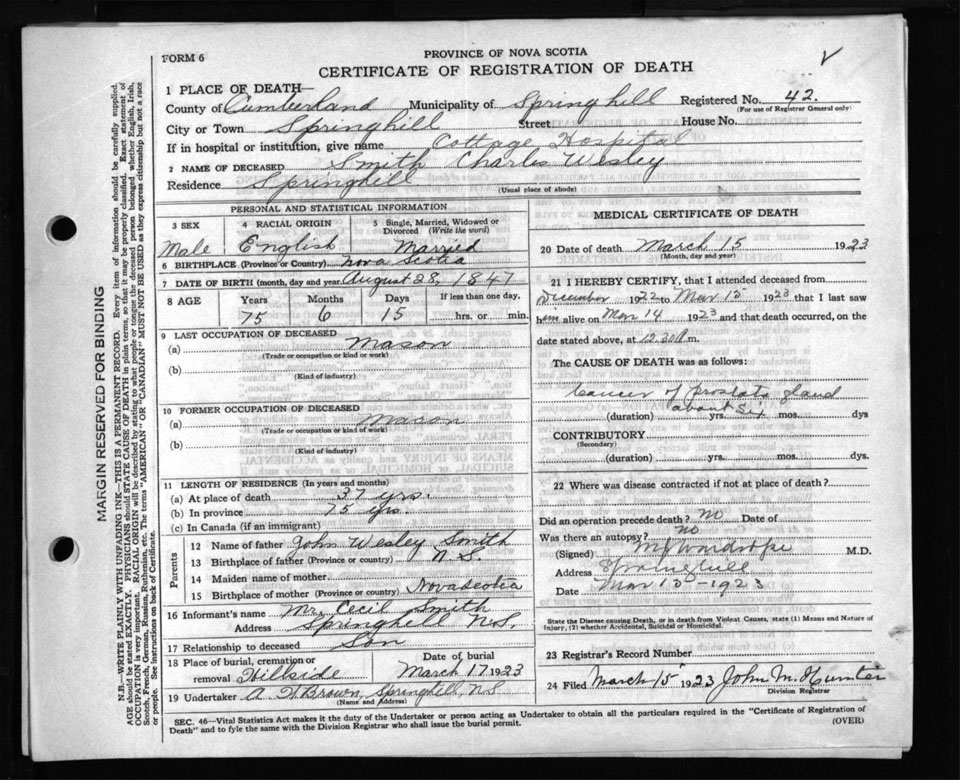 FORM 6
PROVINCE OF NOVA SCOTIA
CERTIFICATE OF REGISTRATION OF DEATH
1 PLACE OF DEATH—
County of Cumberland Municipality of Springhill Registered No. 42.
(For use of Registrar General only)
City or Town Springhill Street House No.
If in hospital or institution, give name Cottage Hospital
2 NAME OF DECEASED Smith Charles Wesley
Residence Springhill
(Usual place of abode)
PERSONAL AND STATISTICAL INFORMATION
3 SEX 4 RACIAL ORIGIN 5 Single, Married, Widowed or Divorced (Write the word)
Male English Married
6 BIRTHPLACE (Province or Country) Nova Scotia
7 DATE OF BIRTH (month, day and year) August 28, 1847
8 AGE Years Months Days If less than one day,
75 6 15 hrs. or min.
9 LAST OCCUPATION OF DECEASED
(a) Mason
(Trade or occupation or kind of work)
(b)
(Kind of industry)
10 FORMER OCCUPATION OF DECEASED
(a) Mason
(Trade or occupation or kind of work)
(b)
(Kind of industry)
11 LENGTH OF RESIDENCE (In years and months)
(a) At place of death 37 yrs.
(b) In province 75 yrs.
(c) In Canada (if an immigrant)
Parents
12 Name of father John Wesley Smith
13 Birthplace of father (Province or country) N.S
14 Maiden name of mother
15 Birthplace of mother (Province or Country) Nova Scotia
16 Informant's name Mr. Cecil Smith
Address Springhill N.S.
17 Relationship to deceased Son
18 Place of burial, cremation or removal Hillside Date of burial March 17 1923
19 Undertaker Brown, Springhill, N.S
(Name and Address)
MEDICAL CERTIFICATE OF DEATH
20 Date of death March 15 1923
(Month, day and year)
21 I HEREBY CERTIFY, that I attended deceased from
December 1922 to Mar 15 1923 that I last saw
him alive on Mar 14 1923 and that death occurred, on
date stated above, at 12.30 m.
The CAUSE OF DEATH was as follows:
Cancer of prostate gland
about six
(duration) yrs. mos. dys
CONTRIBUTORY
(Secondary)
(duration) yrs. mos. dys.
22 Where was disease contracted if not at place of death?
Did an operation precede death? no Date of
Was there an autopsy? no
(Signed) M.D.
Address Springhill
Date Mar 15-1923
State the Disease causing Death, or in death from Violent Causes, state (1) Means and Nature of Injury, (2) whether Accidental, Suicidal or Homicidal.
23 Registrar's Record Number
24 Filed March 15 1923 John M. Hunter
Division Registrar
SEC. 46—Vital Statistics Act makes it the duty of the Undertaker or person acting as Undertaker to obtain all the particulars required in the "Certificate of Registration of
Death" and to fyle the same with the Division Registrar who shall issue the burial permit.
(OVER)
MARGIN RESERVED FOR BINDING
N.B.—WRITE PLAINLY WITH UNFADING INK—THIS IS A PERMANENT RECORD. Every item of information should be carefully supplied.
AGE should be stated EXACTLY. PHYSICIANS should STATE CAUSE OF DEATH in plain terms, so that it may be properly classified. Exact statement of
OCCUPATION is very important. RACIAL ORIGIN will be described by stating to what people or tongue the deceased person belonged whether English, Irish,
Scotch, French, German, Russian, Ruthenian, etc. The terms "AMERICAN" or "CANADIAN" MUST NOT BE USED as they express citizenship but not a race
or people. See instructions on back of Certificate.